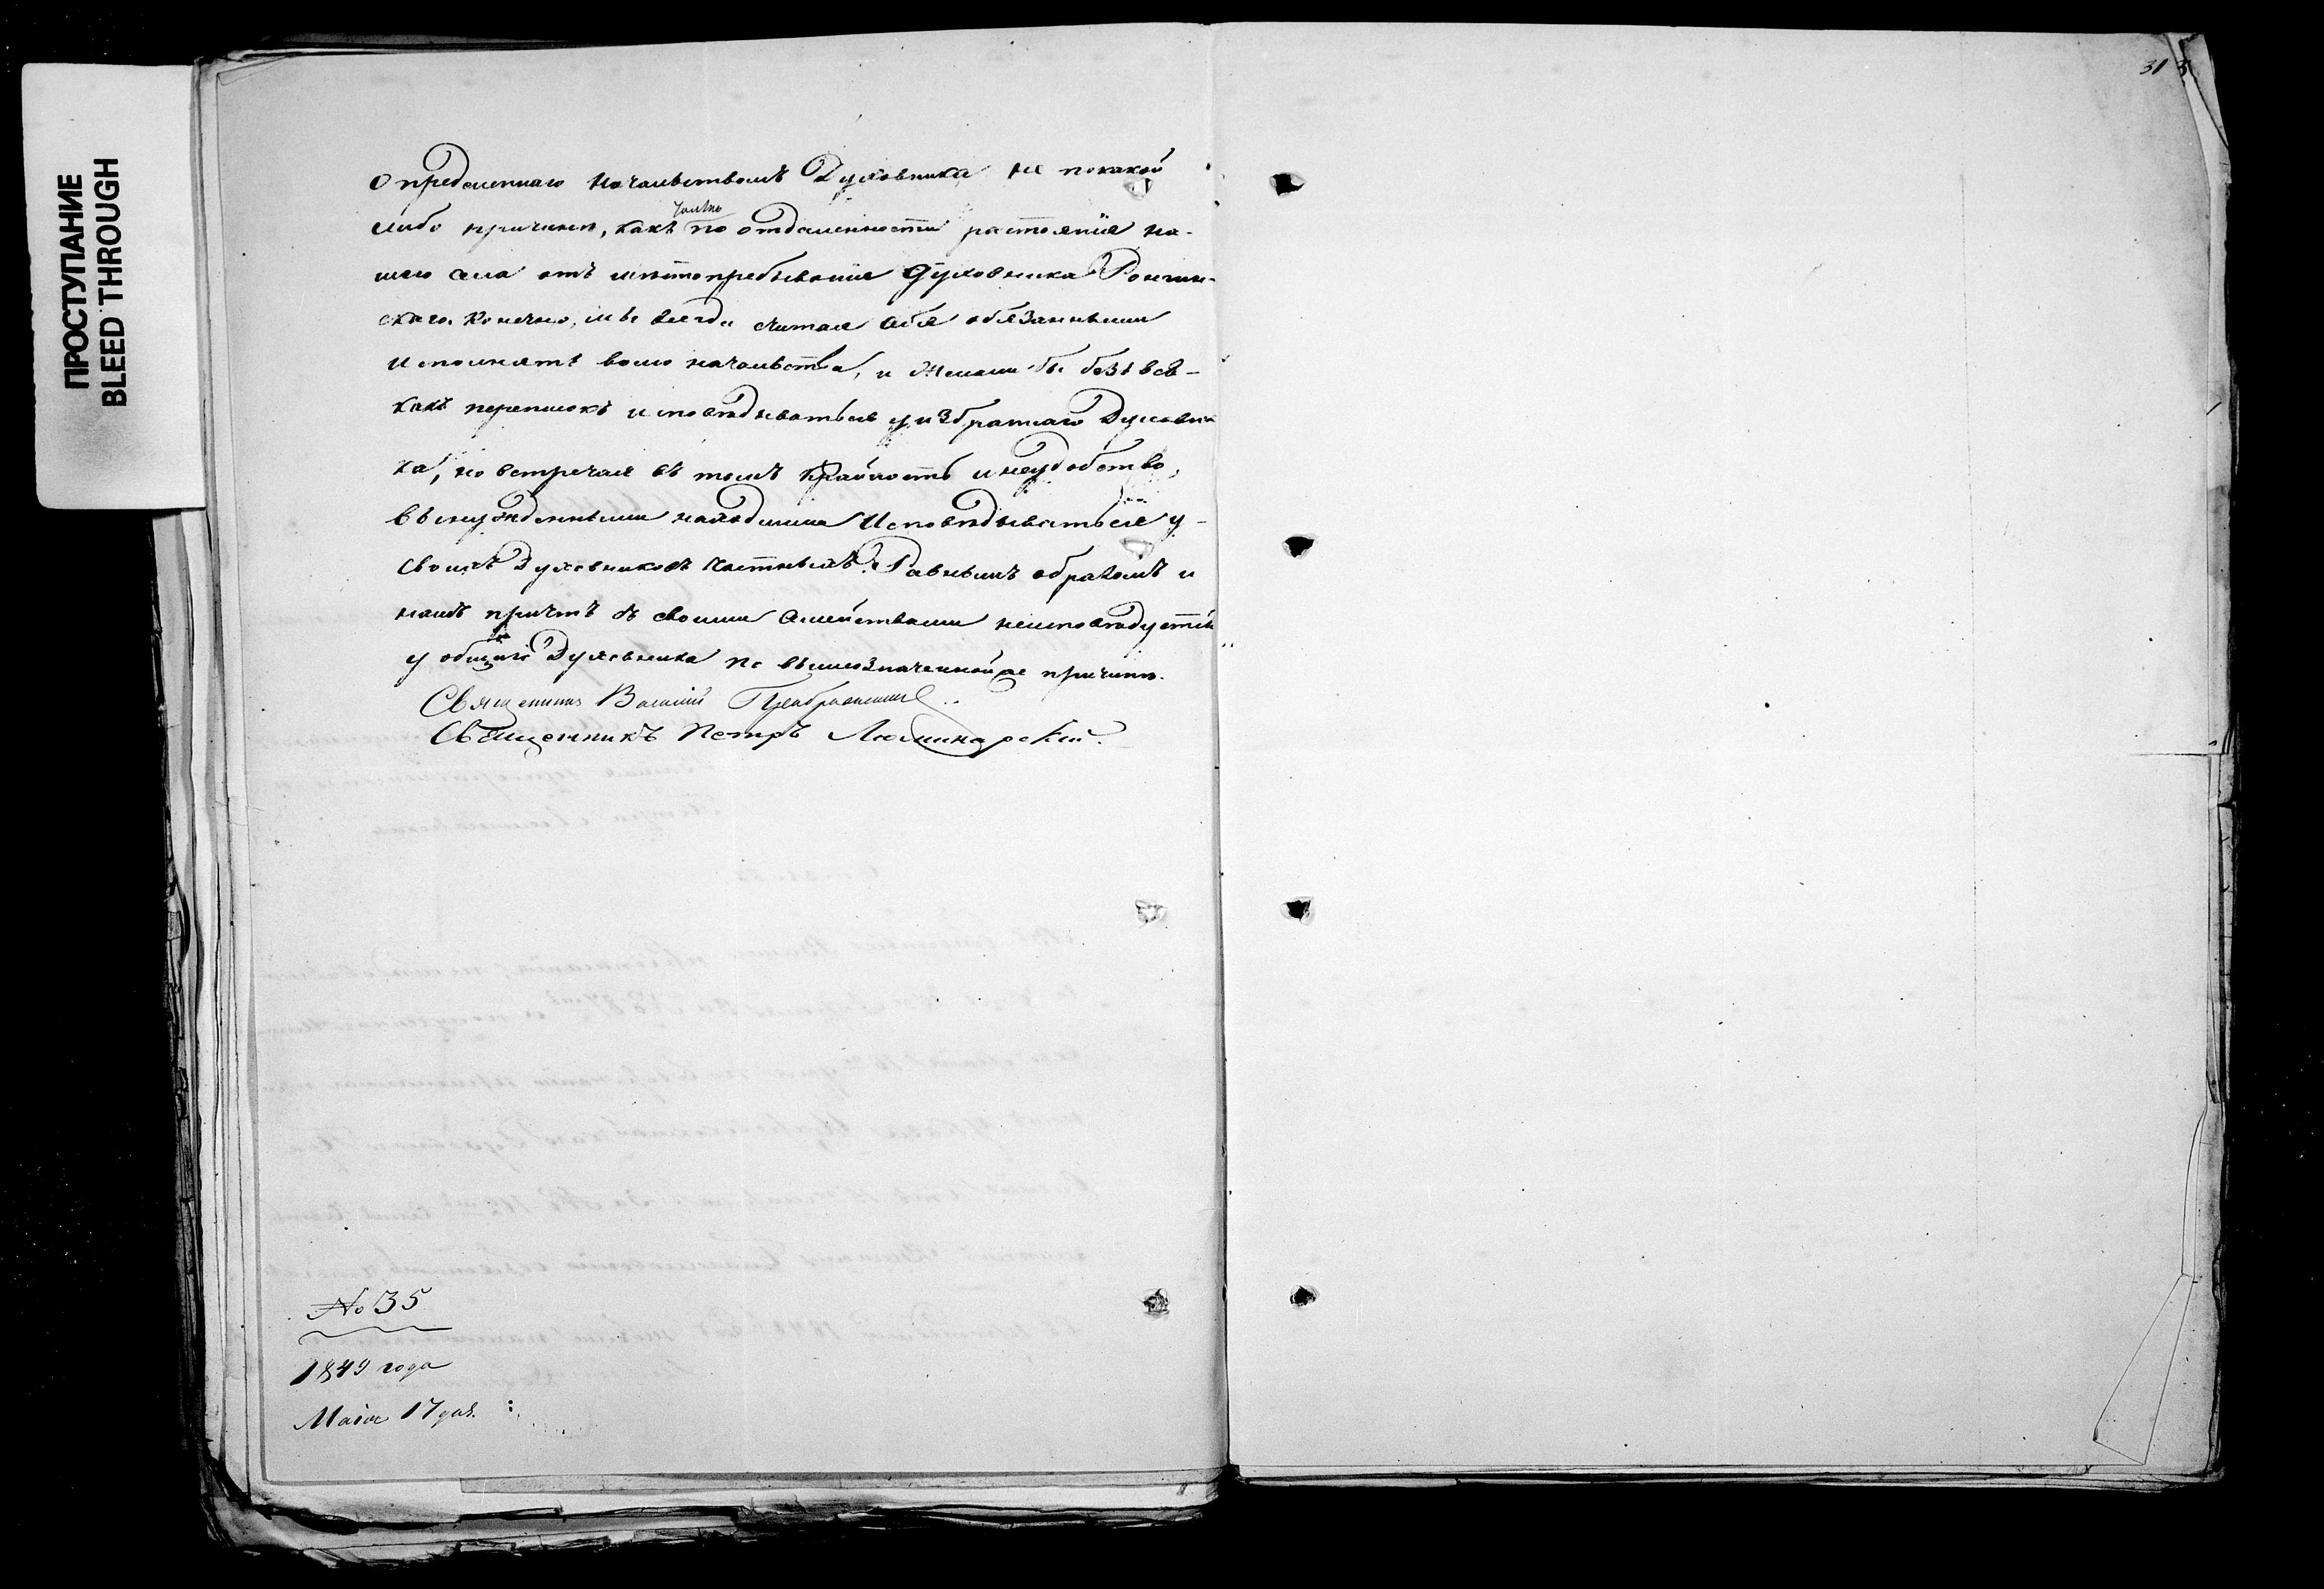 ПРОСТУПАНИЕ
BLEED THROUGH
31
опредѣленнаго Начальствомъ Духовника не покакой
либо причинѣ, какъ только по отдаленности растоянія на-
шего села отъ мѣстопребыванія Духовника
скаго. Конечно, мы всегда считая себя обязанными
исполнять волю начальства, и желали бы безъ вся-
какъ переписокъ исповѣдываться у избраннаго Духовни
ка, но встречая въ томъ крайность и неудобство,
вынужденными находимся Исповѣдываться у
своихъ Духовниковъ частныхъ. Равнымъ образомъ и
нашъ причтъ съ своими семействами неисповѣдуется
у общаго Духовника по вышеозначенной же причинѣ.
Священникъ Василій Преображенскій
Священникъ Петръ Люминарскій.
№ 35
1849 года
Маія 17 дня.